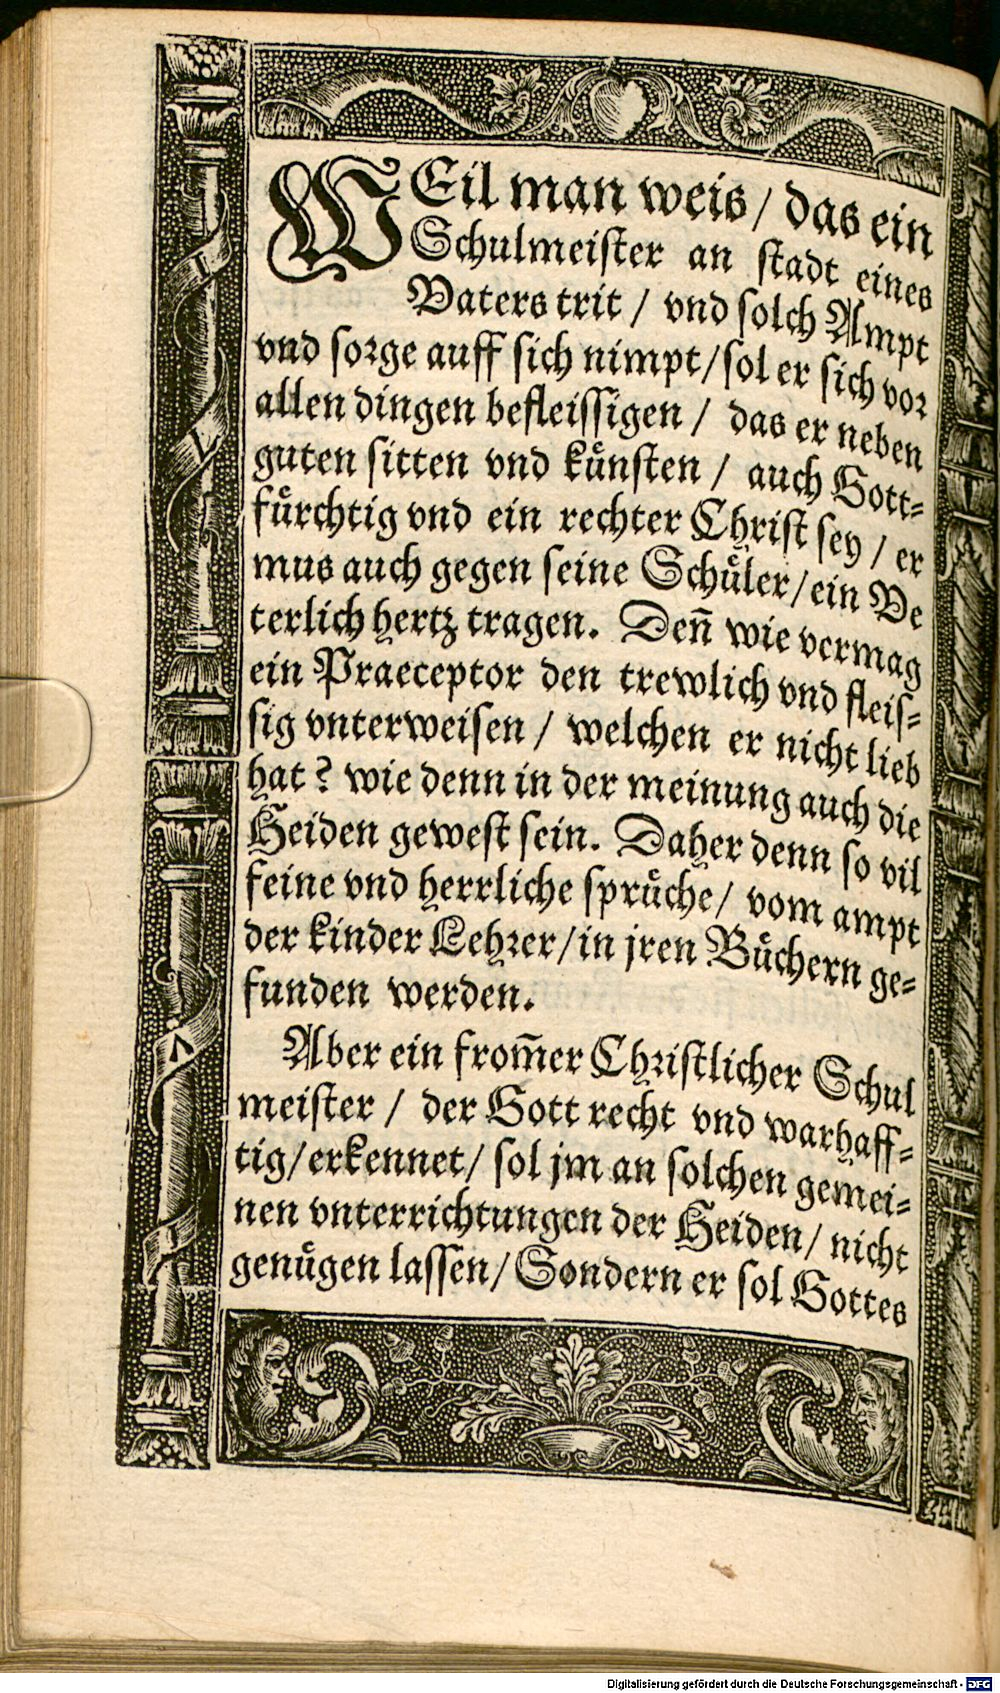 WEil man weis / das ein
Schulmeister an stadt eines
Vaters trit / vnd solch Ampt
vnd sorge auff sich nimpt / sol er sich vor
allen dingen befleissigen / das er neben
guten sitten vnd kuͤnsten / auch Gott⸗
fuͤrchtig vnd ein rechter Christ sey / er
mus auch gegen seine Schuͤler / ein Ve
terlich hertz tragen. Den̄ wie vermag
ein Praeceptor den trewlich vnd fleis⸗
sig vnterweisen / welchen er nicht lieb
hat? wie denn in der meinung auch die
Heiden gewest sein. Daher denn so vil
feine vnd herrliche spruͤche / vom ampt
der kinder Lehrer / in jren Buͤchern ge⸗
funden werden.
Aber ein from̄er Christlicher Schul
meister / der Gott recht vnd warhaff⸗
tig / erkennet / sol jm an solchen gemei⸗
nen vnterrichtungen der Heiden / nicht
genuͤgen lassen / Sondern er sol Gottes
Digitalisierung gefördert durch die Deutsche Forschungsgemeinschaft - DFG